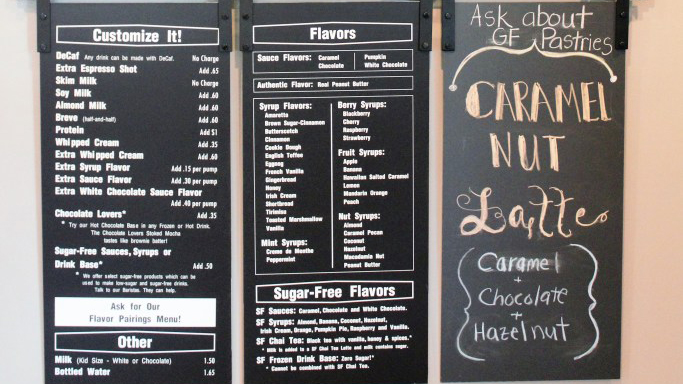 Customize It!
DeCaf Any drink can be made with DeCaf. No Charge
Extra Espresso Shot Add .65
Skim Milk No Charge
Soy Milk Add .60
Almond Milk Add .60
Breve (half-and-half) Add .60
Protein Add $1
Whipped Cream Add .35
Extra Whipped Cream Add .60
Extra Syrup Flavor Add .15 per pump
Extra Sauce Flavor Add .30 per pump
Extra White Chocolate Sauce Flavor
Add .40 per pump
Chocolate Lovers* Add .35
* Try our Hot Chocolate Base in any Frozen or Hot Drink.
The Chocolate Lovers Stoked Mocha
tastes like brownie batter!
Sugar-Free Sauces, Syrups or
Drink Base* Add .50
* We offer select sugar-free products which can be
used to make low-sugar and sugar-free drinks.
Talk to our Baristas. They can help.
Ask for Our
Flavor Pairings Menu!
Other
Milk (Kid Size - White or Chocolate) 1.50
Bottled Water 1.65
Flavors
Sauce Flavors: Caramel
Chocolate
Pumpkin
White Chocolate
Authentic Flavor: Real Peanut Butter
Syrup Flavors:
Amaretto
Brown Sugar-Cinnamon
Butterscotch
Cinnamon
Cookie Dough
English Toffee
Eggnog
French Vanilla
Gingerbread
Honey
Irish Cream
Shortbread
Tiramisu
Toasted Marshmallow
Vanilla
Mint Syrups:
Creme de Menthe
Peppermint
Berry Syrups:
Blackberry
Cherry
Raspberry
Strawberry
Fruit Syrups:
Apple
Banana
Hawaiian Salted Caramel
Lemon
Mandarin Orange
Peach
Nut Syrups:
Almond
Caramel Pecan
Coconut
Hazelnut
Macadamia Nut
Peanut Butter
Sugar-Free Flavors
SF Sauces: Caramel, Chocolate and White Chocolate.
SF Syrups: Almond, Banana, Coconut, Hazelnut,
Irish Cream, Orange, Pumpkin Pie, Raspberry and Vanilla.
SF Chai Tea: Black tea with vanilla, honey & spices.*
* Milk is added to a SF Chai Tea Latte and milk contains sugar.
SF Frozen Drink Base: Zero Sugar!*
* Cannot be combined with SF Chai Tea.
Ask about
GF Pastries
CARAMEL
NUT
Latte
Caramel
+
Chocolate
+
Hazelnut